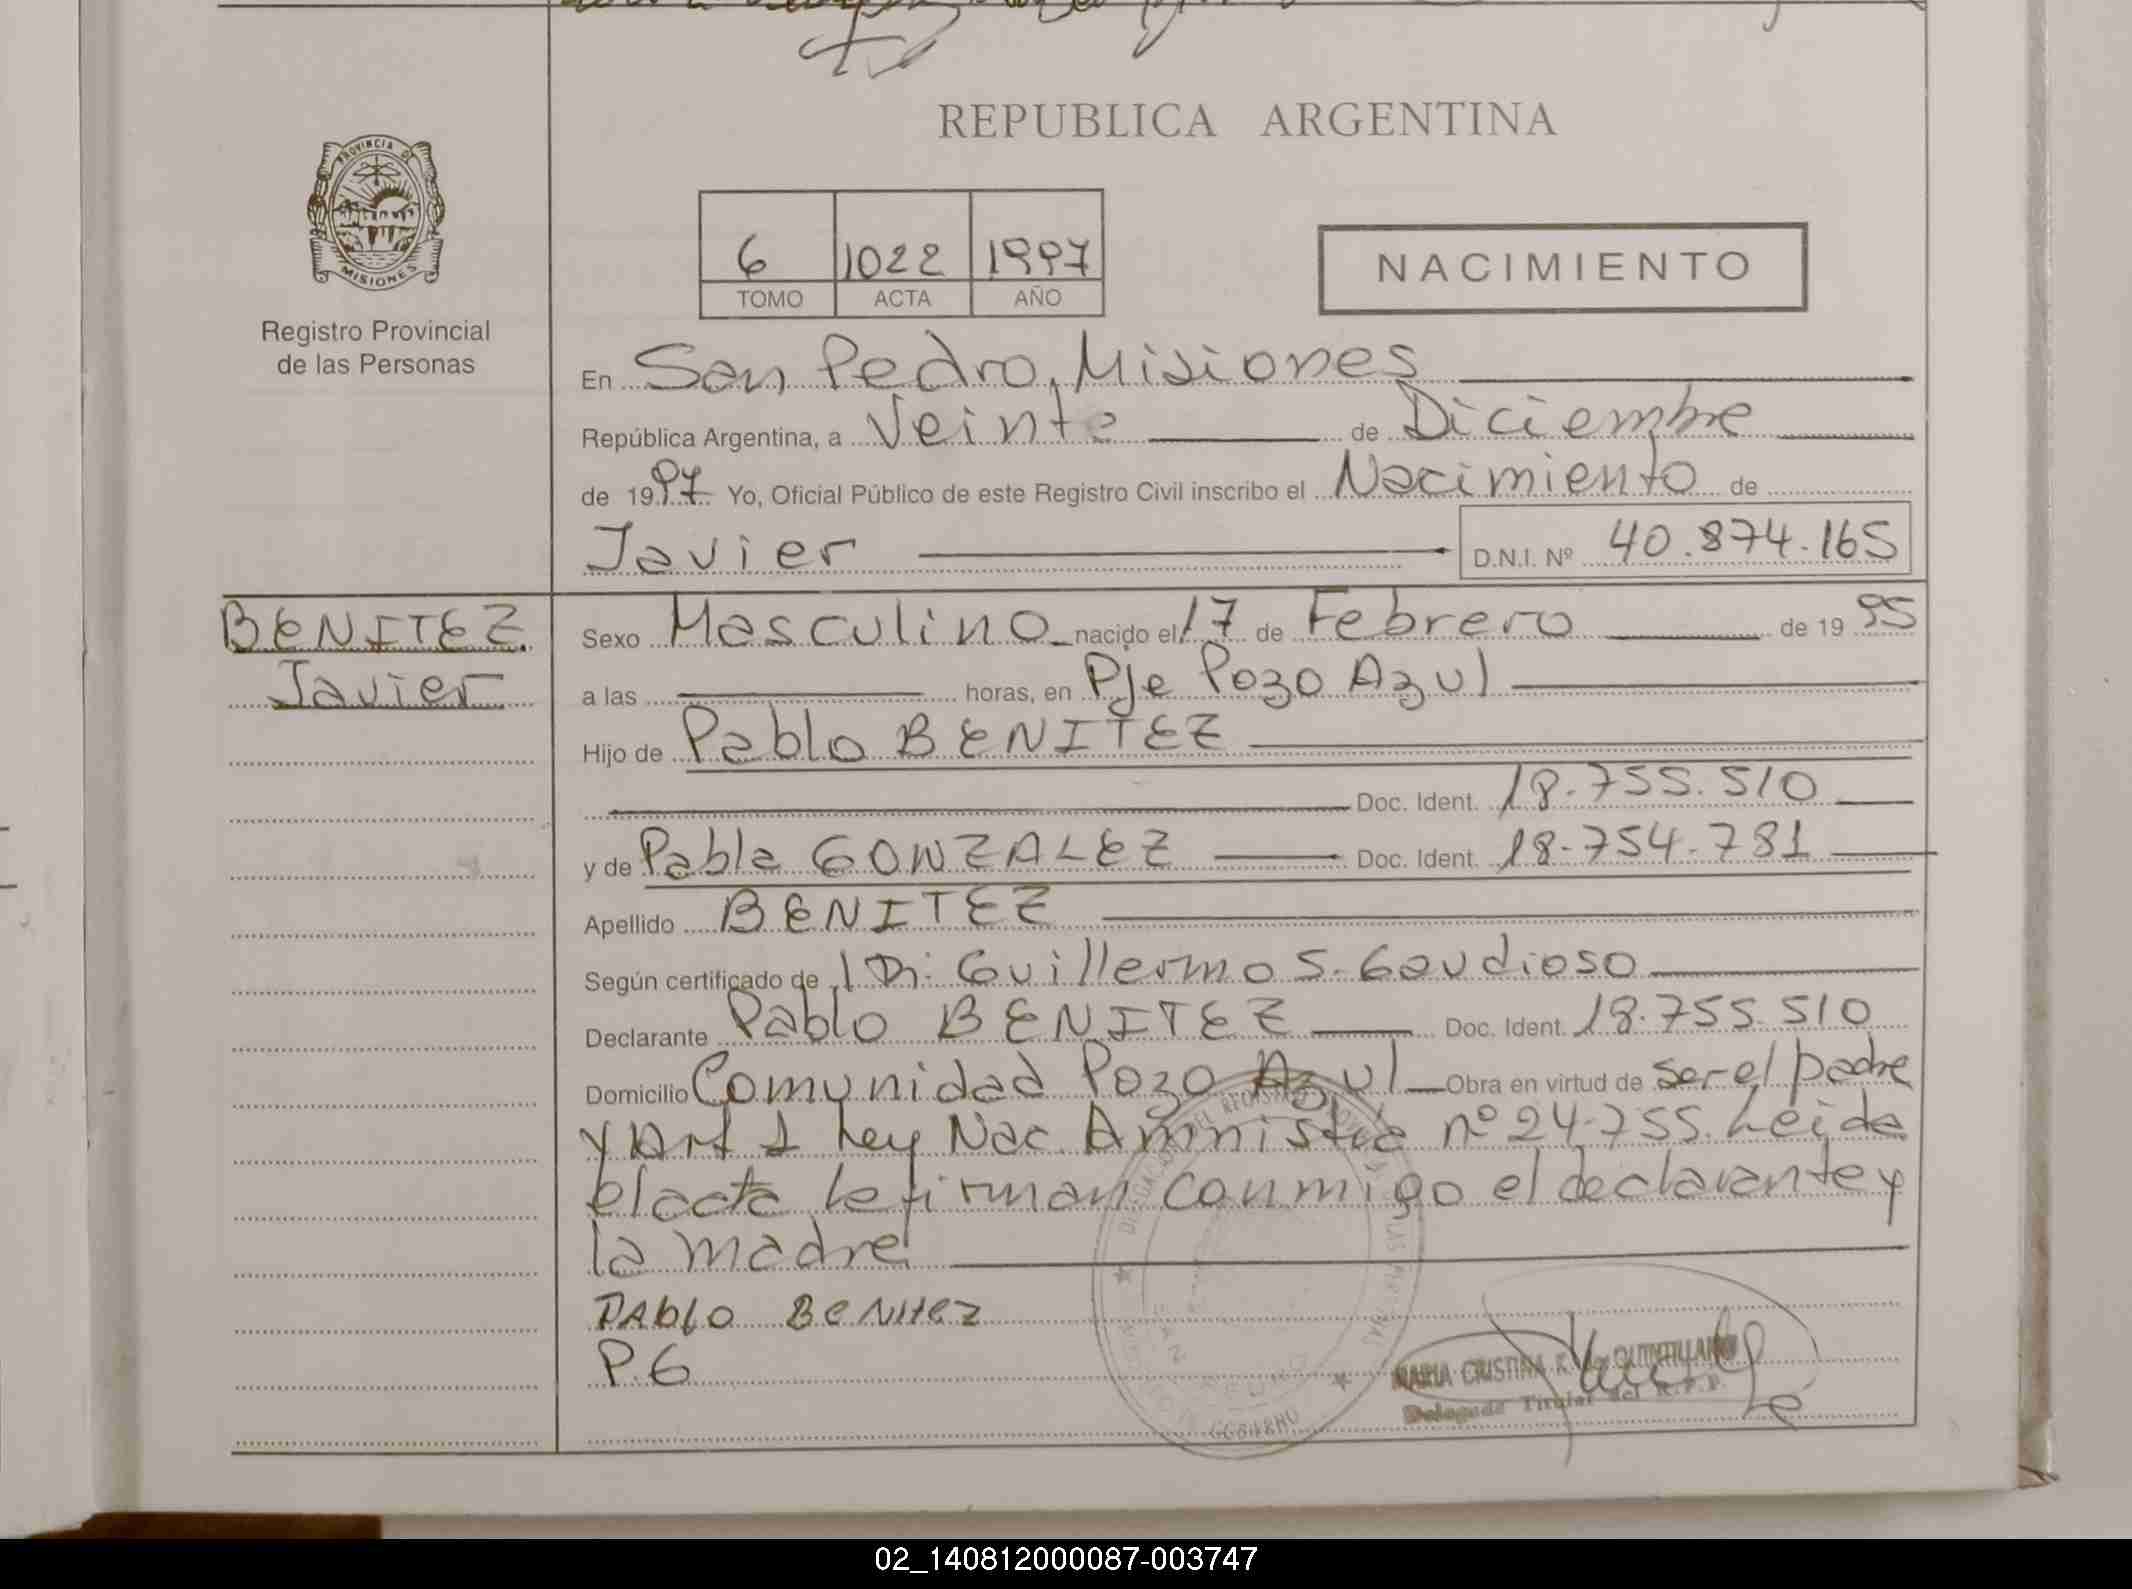 REPUBLICA ARGENTINA
PROVINCIA DE
MISIONES
Registro Provincial
de las Personas
6 1022 1997
TOMO ACTA AÑO
NACIMIENTO
En San Pedro, Misiones
República Argentina, a Veinte de Diciembre
de 1997 Yo, Oficial Público de este Registro Civil inscribo el Nacimiento de
Javier D.N.I. Nº 40.874.165
BENITEZ
Javier
Sexo Masculino nacido el 17 de Febrero de 1995
a las horas, en Pje Pozo Azul
Hijo de Pablo BENITEZ
Doc. Ident. 18.755.510
y de Pabla GONZALEZ Doc. Ident. 18.754.781
Apellido BENITEZ
Según certificado de Guillermo S. Gaudioso
Declarante Pablo BENITEZ Doc. Ident. 18.755.510
Domicilio Comunidad Pozo Azul Obra en virtud de ser el padre
y Art 1 Ley Nac Amnistia nº 24.755. Leida
el acta la firman conmigo el declarante y
la madre
PAblo BeNitez
P.G
MARIA CRISTINA R. de QUINTILLAN
Delegada Titular del R.P.P.
02_140812000087-003747